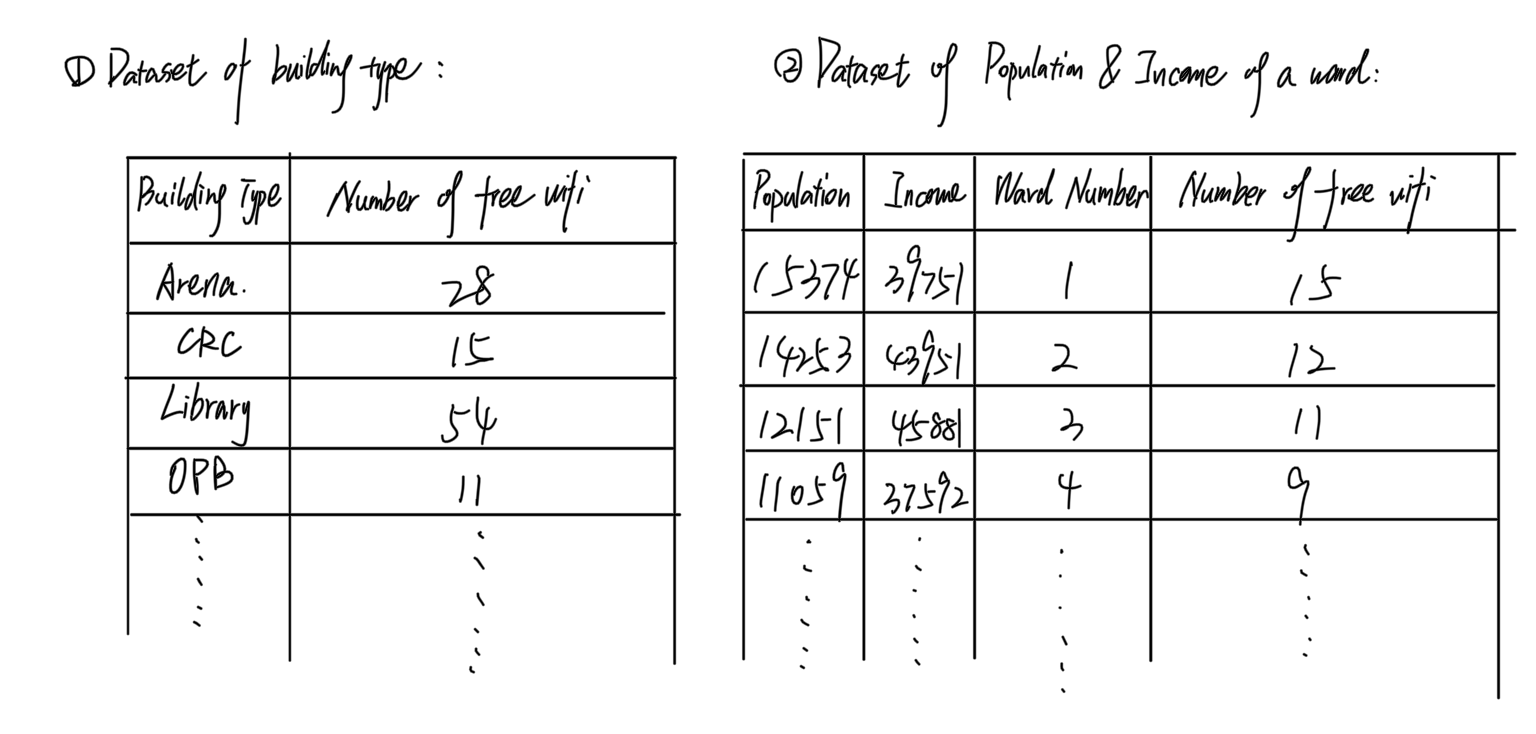 ① Dataset of building type :
Building Type Number of free wifi
Arena. 28
CRC 15
Library 54
OPB 11
② Dataset of Population & Income of a ward:
Population Income Ward Number Number of free wifi
15374 39751 1 15
14253 43951 2 12
12151 45881 3 11
11059 37592 4 9